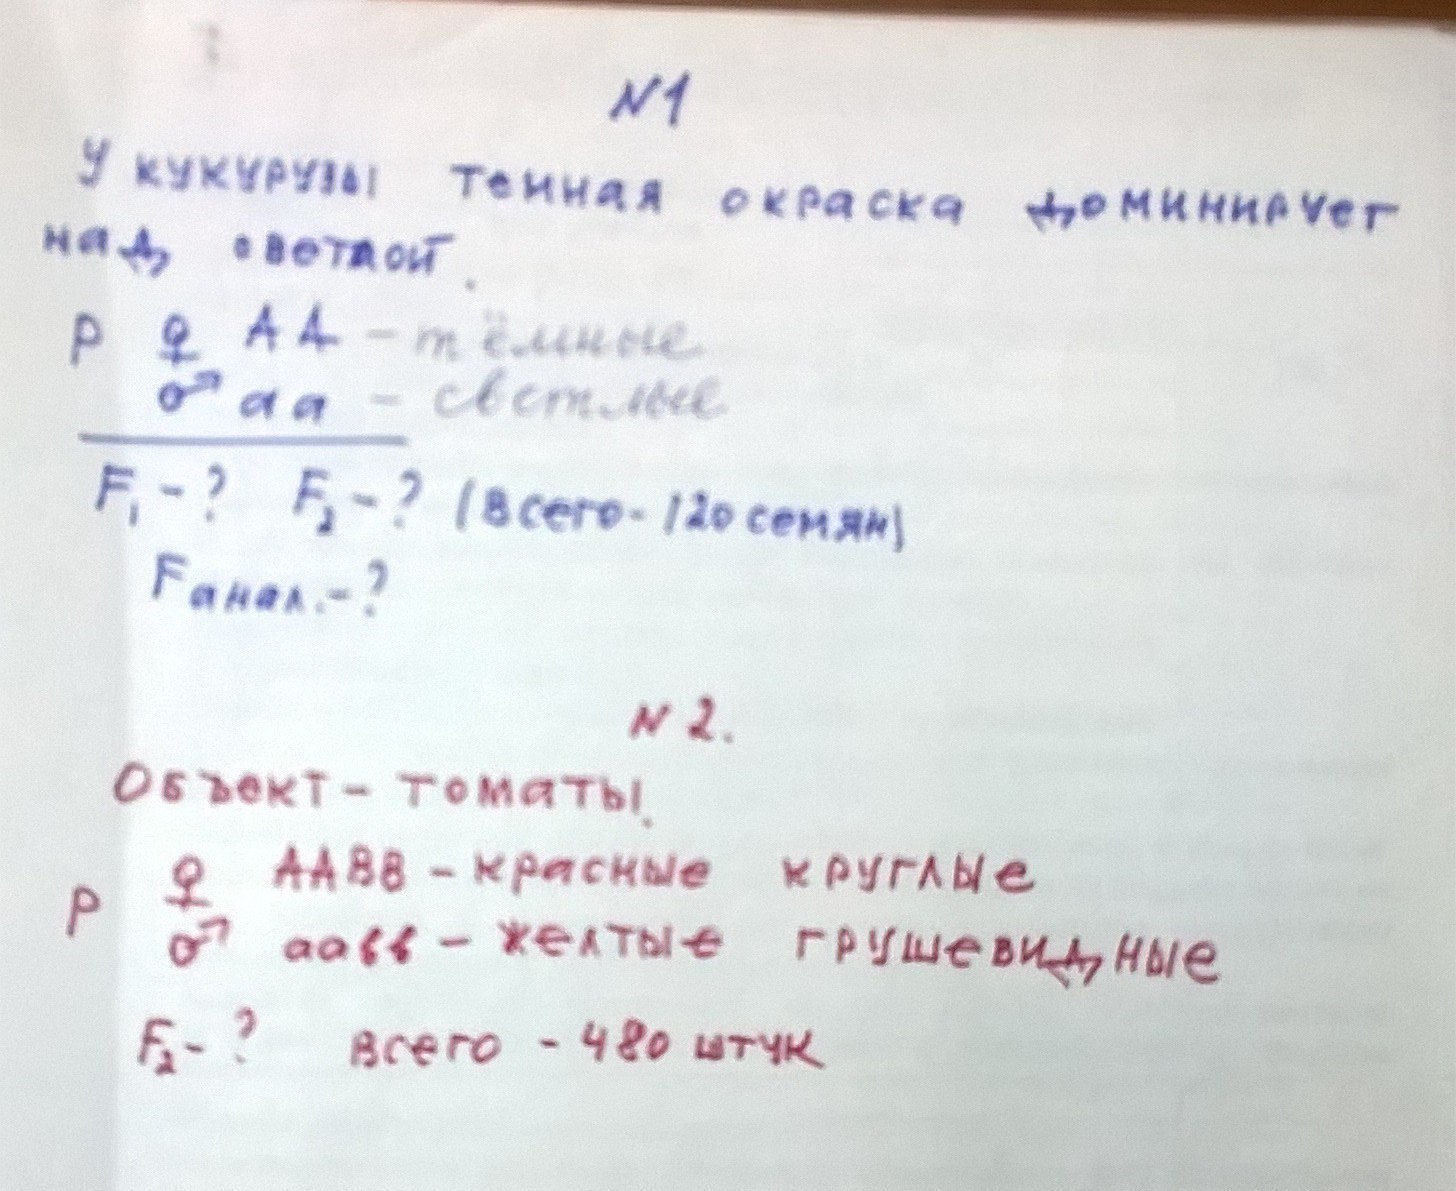 N1
У кукурузы темная окраска доминирует
над светлой.
P ♀ AA - тёмные
♂ aa - светлые
F1 - ? F2 - ? (Всего - 120 семян)
Fанал. - ?
N 2.
Объект - томаты.
P ♀ AABB - красные круглые
♂ aaвв - желтые грушевидные
F2 - ? Всего - 480 штук